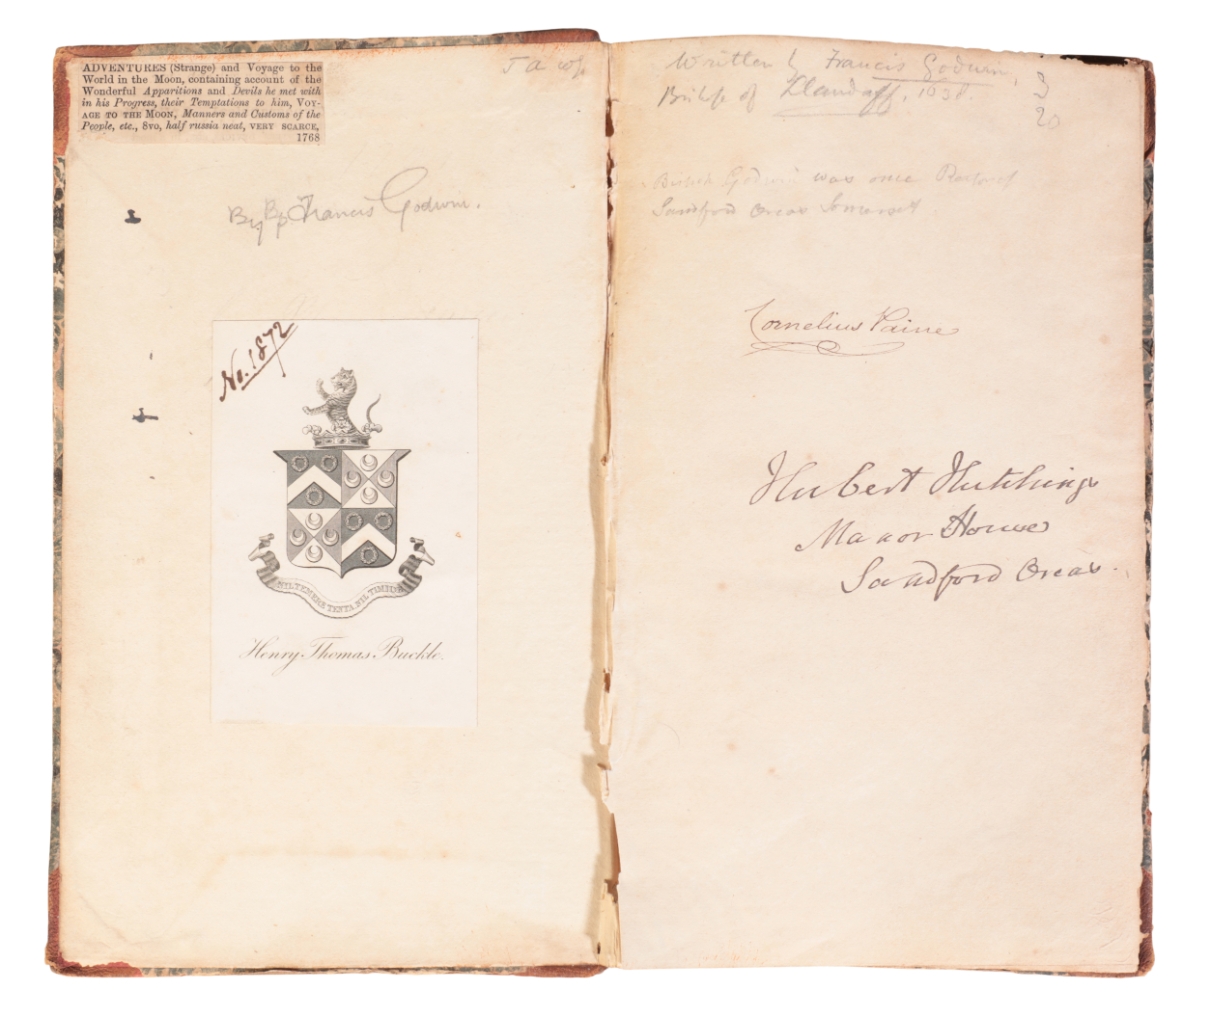 ADVENTURES (Strange) and Voyage to the
World in the Moon, containing account of the
Wonderful Apparitions and Devils he met with
in his Progress, their Temptations to him, VOY-
AGE TO THE MOON, Manners and Customs of the
People, etc., 8vo, half russia neat, VERY SCARCE,
1768
By Bp Francis Godwin.
No. 1872
NIL TEMERE TENTA NIL TIMIDE
Henry Thomas Buckle.
Written by Francis Godwin,
Bishop of Llandaff, 1638.
3
20
Bishop Godwin was once Rector of
Sandford Orcas Somerset
Cornelius Paine
Hubert Hutchings
Manor House
Sandford Orcas.